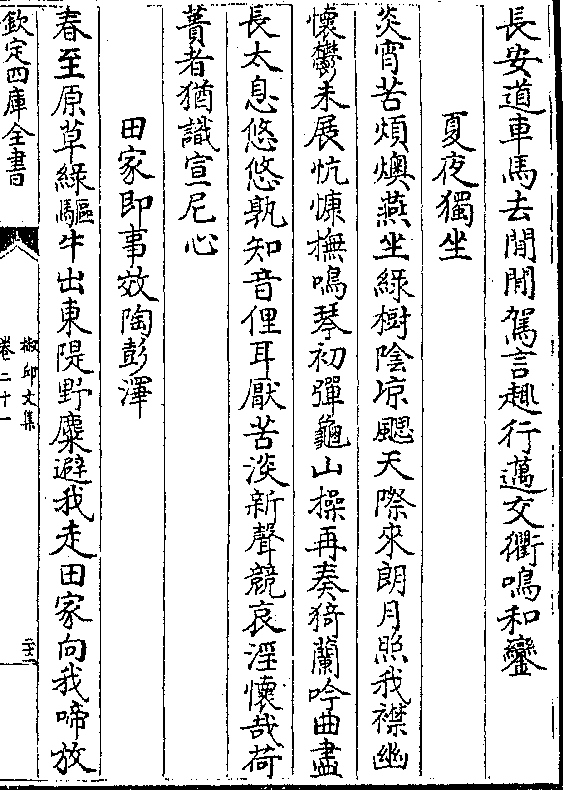 長安道車馬去閒閒駕言趣行邁交衢鳴和鑾
夏夜獨坐
炎宵苦煩燠燕坐綠樹陰凉颸天際來朗月照我襟幽
懷鬱未展忼慷撫鳴琴初彈龜山操再奏猗蘭吟曲盡
長太息悠悠孰知音俚耳厭苦淡新聲競哀淫懷哉荷
蕢者猶識宣尼心
田家即事效陶彭澤
春至原草綠驅牛出東隄野麋避我走田家向我啼放
欽定四庫全書
椒邱文集
卷二十一